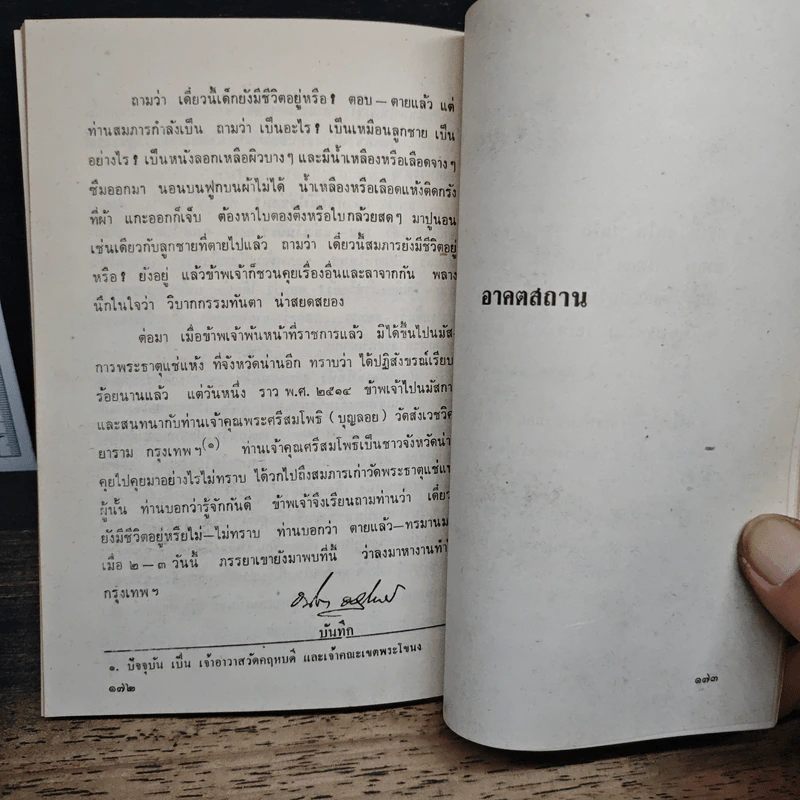 ถามว่า เดี๋ยวนี้เด็กยังมีชีวิตอยู่หรือ? ตอบ — ตายแล้ว แต่
ท่านสมภารกำลังเป็น ถามว่า เป็นอะไร? เป็นเหมือนลูกชาย เป็น
อย่างไร? เป็นหนังลอกเหลือผิวบางๆ และมีน้ำเหลืองหรือเลือดจางๆ
ซึมออกมา นอนบนฟูกบนผ้าไม่ได้ น้ำเหลืองหรือเลือดแห้งติดกรัง
ที่ผ้า แกะออกก็เจ็บ ต้องหาใบตองตึงหรือใบกล้วยสดๆ มาปูนอน
เช่นเดียวกับลูกชายที่ตายไปแล้ว ถามว่า เดี๋ยวนี้สมภารยังมีชีวิตอยู่
หรือ? ยังอยู่ แล้วข้าพเจ้าก็ชวนคุยเรื่องอื่นและลาจากกัน พลาง
นึกในใจว่า วิบากกรรมทันตา น่าสยดสยอง
ต่อมา เมื่อข้าพเจ้าพ้นหน้าที่ราชการแล้ว มิได้ขึ้นไปนมัส
การพระธาตุแช่แห้ง ที่จังหวัดน่านอีก ทราบว่า ได้ปฏิสังขรณ์เรียบ
ร้อยนานแล้ว แต่วันหนึ่ง ราว พ.ศ. ๒๕๑๔ ข้าพเจ้าไปนมัสกา
และสนทนากับท่านเจ้าคุณพระศรีสมโพธิ (บุญลอย) วัดสังเวชวิศ
ยาราม กรุงเทพฯ(๑) ท่านเจ้าคุณศรีสมโพธิเป็นชาวจังหวัดน่า
คุยไปคุยมาอย่างไรไม่ทราบ ได้วกไปถึงสมภารเก่าวัดพระธาตุแช่แห
ผู้นั้น ท่านบอกว่ารู้จักกันดี ข้าพเจ้าจึงเรียนถามท่านว่า เดี๋ยว
ยังมีชีวิตอยู่หรือไม่—ไม่ทราบ ท่านบอกว่า ตายแล้ว—ทรมานม
เมื่อ ๒ – ๓ วันนี้ ภรรยาเขายังมาพบที่นี้ ว่าลงมาหางานทำ
กรุงเทพฯ
บันทึก
๑. ปัจจุบัน เป็น เจ้าอาวาสวัดคฤหบดี และเจ้าคณะเขตพระโขนง
๑๗๒
อาคตสถาน
๑๗๓